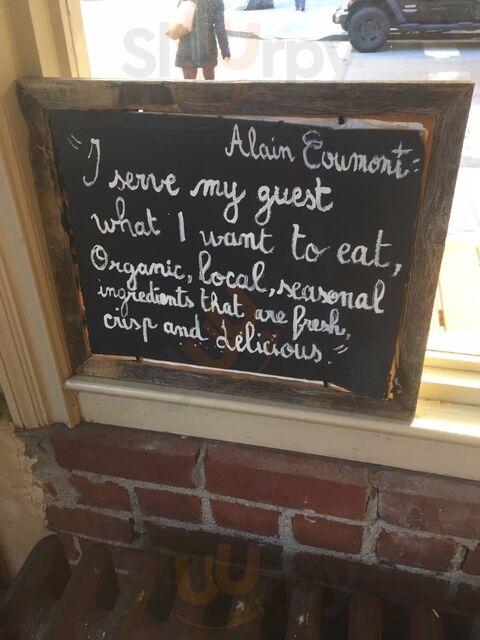 Alain Eoumont:
"I serve my guest
what I want to eat,
Organic, local, seasonal
ingredients that are fresh,
crisp and delicious."
Sluurpy
Sluurpy